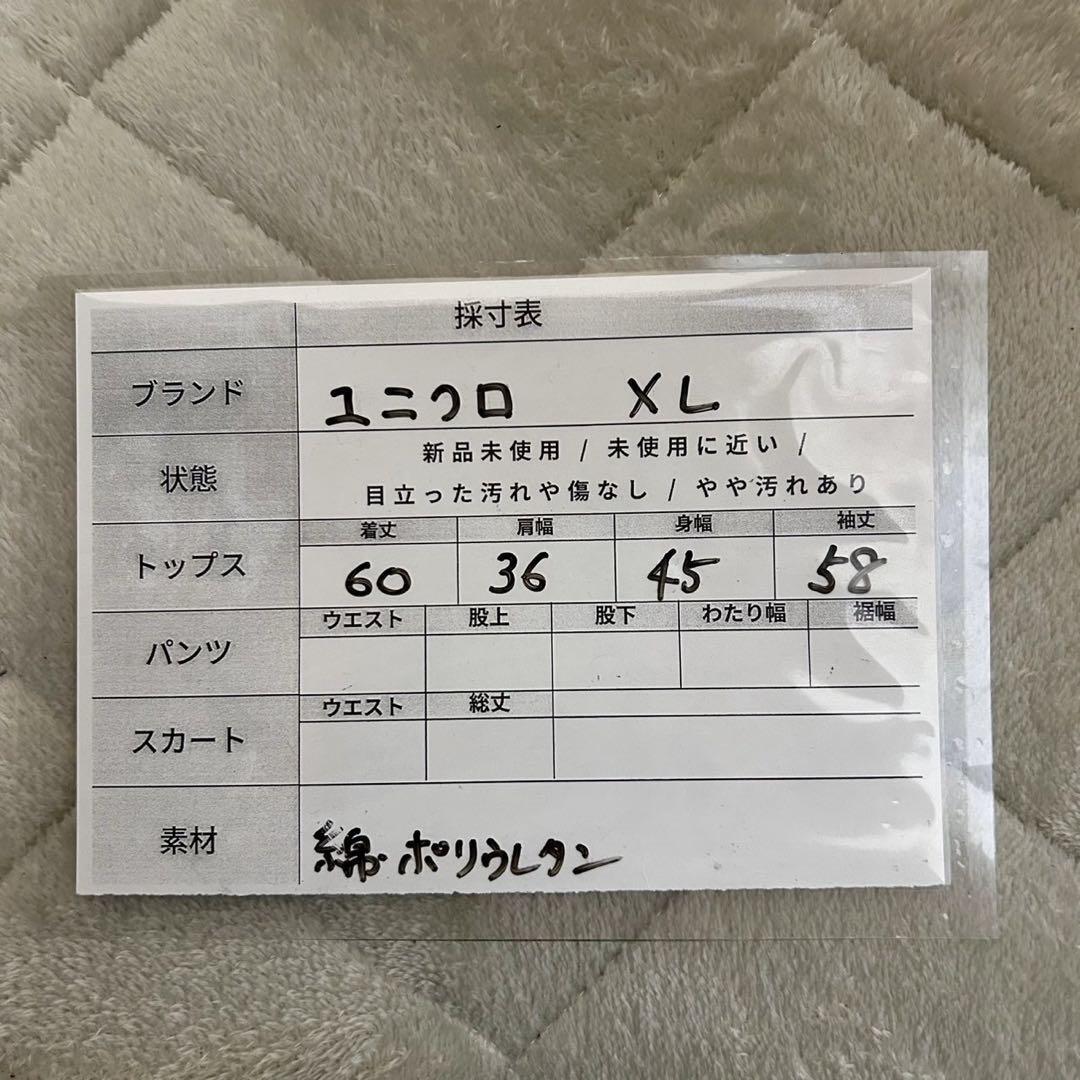 採寸表
ブランド ユニクロ XL
状態 新品未使用 / 未使用に近い /
目立った汚れや傷なし / やや汚れあり
着丈 肩幅 身幅 袖丈
トップス 60 36 45 58
ウエスト 股上 股下 わたり幅 裾幅
パンツ
ウエスト 総丈
スカート
素材 綿・ポリウレタン